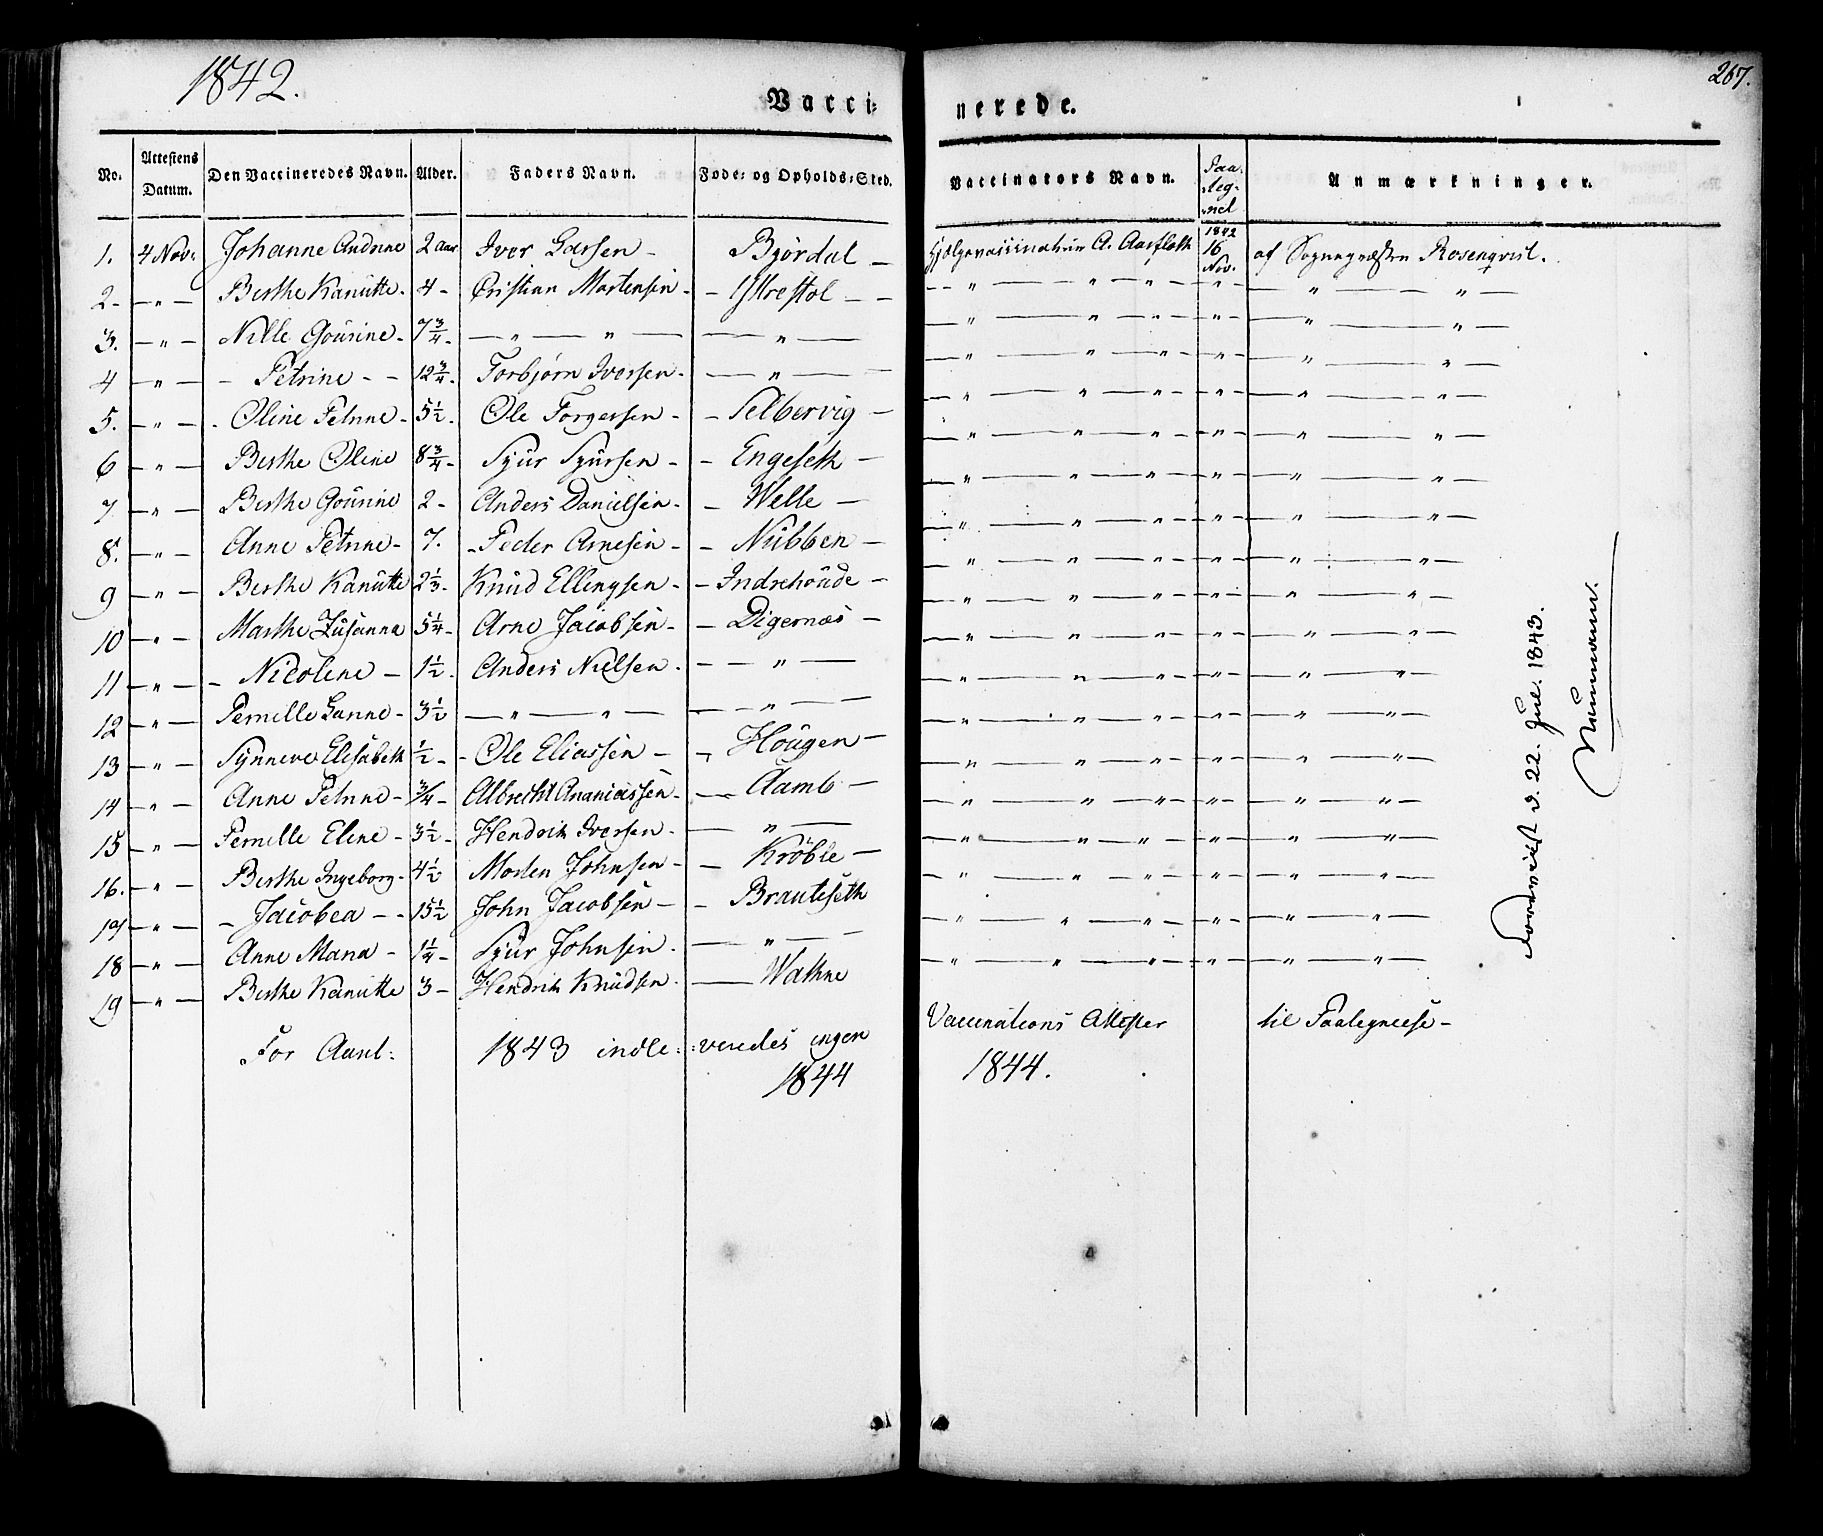 1842.
267.
Vacci-
nerede.
No. Attestens Datum. Den Vaccineredes Navn. Alder. Faders Navn. Føde- og Opholds-Sted. Vaccinators Navn. Paa-teg-net Anmærkninger.
1. 4 Nov: Johanne Andrine 2 aar Iver Larsen - Bjørdal - Hjælpevaccinateur A. Aarfloth 1842 16 Nov. af Sognepræsten Rosenqvist.
2 - " - Berthe Kanutte - 4 - Cristian Mortensen - - Ytrestøl - - - " - " - " - - " - - " - " -
3. - " - Nille Gourine - 7 3/4 - - " - " - - " - - " - " - " - - " - - " - " -
4 - " - - Petrine - - 12 3/4 - Torbjørn Iversen - - " - - " - " - " - - " - - " - " -
5. - " - - Oline Petrine - 5 1/2 - Ole Torgersen - - Selbervig - - " - " - " - - " - - " - " -
6 - " - Berthe Oline 8 3/4 - Sjur Sjursen - - Engeseth - - " - " - " - - " - - " - " -
7 - " - Berthe Gourine 2 - Anders Danielsen - - Welle - - " - " - " - - " - - " - " -
8. - " - Anne Petrine - 7. - Peder Arnesen - - Nubben - - " - " - " - - " - - " - " -
9 - " - Berthe Kanutte 2 1/3 - Knud Ellingsen - - Indrehoude - - " - " - " - - " - - " - " -
10 - " - Marthe Zusanna 5 1/4 - Arne Jacobsen - - Digernæs - - " - " - " - - " - - " - " -
11 - " - - Nicoline - 1 1/2 - Anders Nielsen - - - " - - " - " - " - - " - - " - " -
12 - " - Pernille Lanne - 3 1/2 - " - " - - - " - - " - " - " - - " - - " - " -
13 - " - Synneve Elisabeth 1/2 - - Ole Eliassen - - Hougen - - " - " - " - - " - - " - " -
14 - " - Anne Petrine - 3/4 - Albrecht Ananiassen - - Aamb - - " - " - " - - " - - " - " -
15 - " - Pernille Eline - 3 1/2 - Hendrik Iversen - - " - - " - " - " - - " - - " - " -
16. - " - Berthe Ingeborg - 4 1/2 Morten Johnsen - - Krøble - - " - " - " - - " - - " - " -
17 - " - - Jacobea - - 15 1/2 John Jacobsen - - Brauteseth - " - " - " - - " - - " - " -
18 - " - Anne Maria - 1 1/4 - Sjur Johnsen - - " - - " - " - " - - " - - " - " -
19 - " - Berthe Kanutte 3 - Hendrik Knudsen - - Wathne
For Aaret: 1843 indle- veredes ingen Vaccinations Attester til Paategnelse -
1844 1844.
d. 22. Jul. 1843.
Neumann.